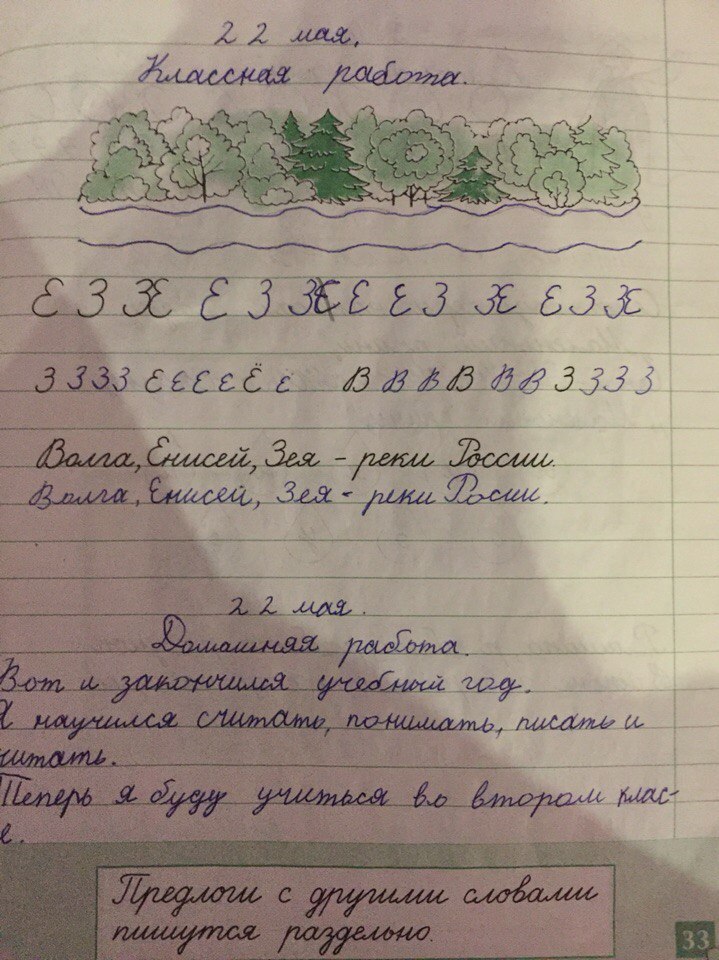 22 мая.
Классная работа.
Е З Ж Е З Ж Е Е З Ж Е З Ж
З З З З Е Е Е Е Ё Ё В В В В В В З З З З
Волга, Енисей, Зея - реки России.
Волга, Енисей, Зея - реки Росии.
22 мая.
Домашняя работа.
Вот и закончился учебный год.
Я научился считать, понимать, писать и
читать.
Теперь я буду учиться во втором клас-
е.
Предлоги с другими словами
пишутся раздельно.
33